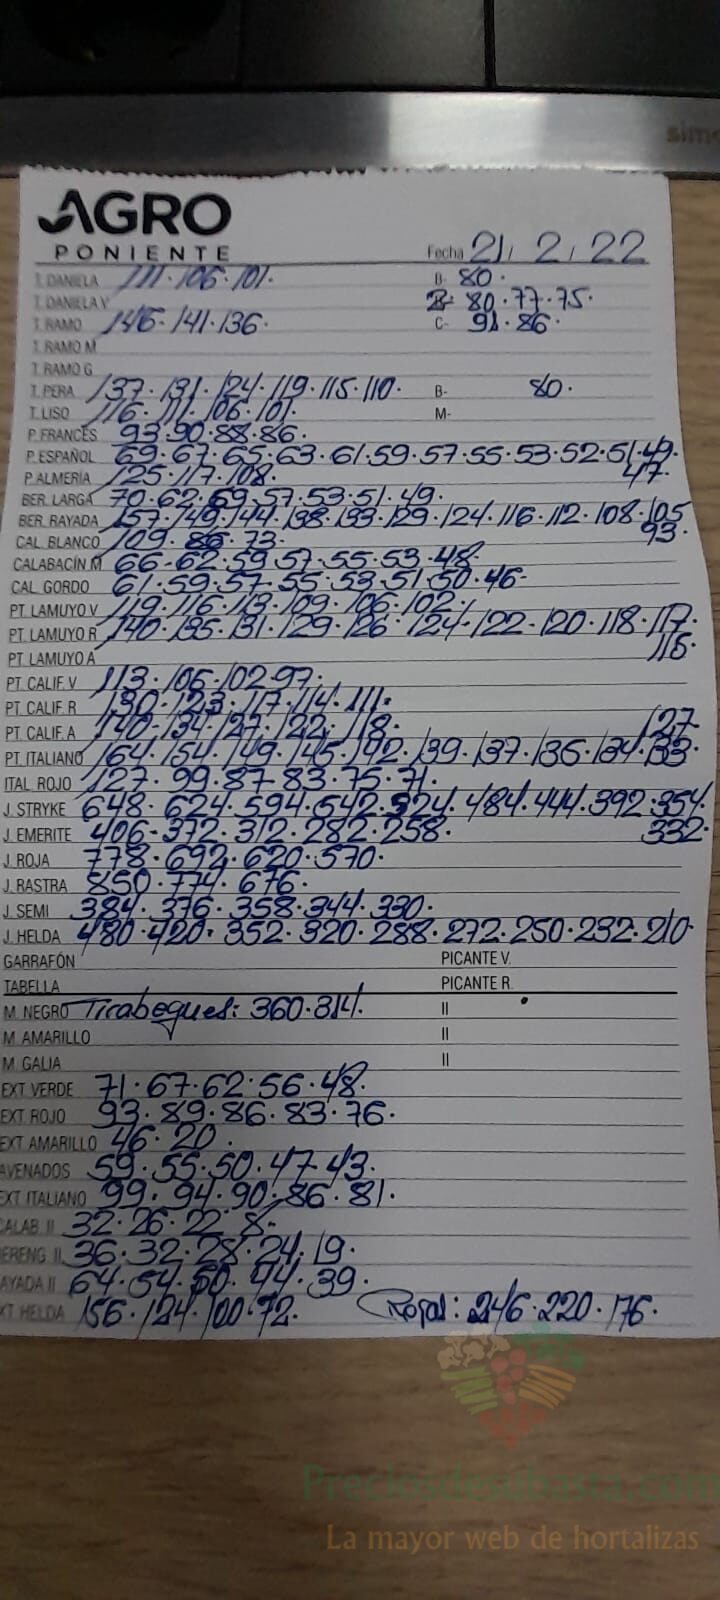 AGRO
PONIENTE
Fecha 21/ 2 / 22
T. DANIELA 111·106·101· B- 80·
T. DANIELA V B- 80·77·75·
T. RAMO 146·141·136· C- 91·86·
T. RAMO M
T. RAMO G
T. PERA 137·131·124·119·115·110· B- 80·
T. LISO 116·111·106·101· M-
P. FRANCÉS 93·90·88·86·
P. ESPAÑOL 69·67·65·63·61·59·57·55·53·52·51·49·
47·
P. ALMERÍA 125·117·108·
BER. LARGA 70·62·59·57·53·51·49·
BER. RAYADA 157·149·144·138·133·129·124·116·112·108·105
93·
CAL. BLANCO 109·86·73·
CALABACÍN M 66·62·59·57·55·53·48·
CAL. GORDO 61·59·57·55·53·51·50·46·
PT. LAMUYO V 119·116·113·109·106·102·
PT. LAMUYO R 140·135·131·129·126·124·122·120·118·117·
115·
PT. LAMUYO A
PT. CALIF. V 113·106·102·97·
PT. CALIF. R 130·123·117·114·111·
PT. CALIF. A 140·134·127·122·118·
127
PT. ITALIANO 164·154·149·145·142·139·137·136·134·133·
ITAL. ROJO 127·99·87·83·75·71·
J. STRYKE 648·624·594·542·524·484·444·392·354·
332·
J. EMERITE 406·372·312·282·258·
J. ROJA 778·692·620·570·
J. RASTRA 850·774·676·
J. SEMI 384·376·358·344·330·
J. HELDA 480·420·352·320·288·272·250·232·210·
GARRAFÓN PICANTE V.
TABELLA PICANTE R.
M. NEGRO Tirabeques: 360·314· II
M. AMARILLO II
M. GALIA II
EXT VERDE 71·67·62·56·48·
EXT ROJO 93·89·86·83·76·
EXT AMARILLO 46·20·
AVENADOS 59·55·50·47·43·
EXT ITALIANO 99·94·90·86·81·
CALAB. II 32·26·22·8·
BERENG. II 36·32·28·24·19·
RAYADA II 64·54·50·44·39·
EXT HELDA 156·124·100·72· 246·220·176·
Preciosdesubasta.com
La mayor web de hortalizas